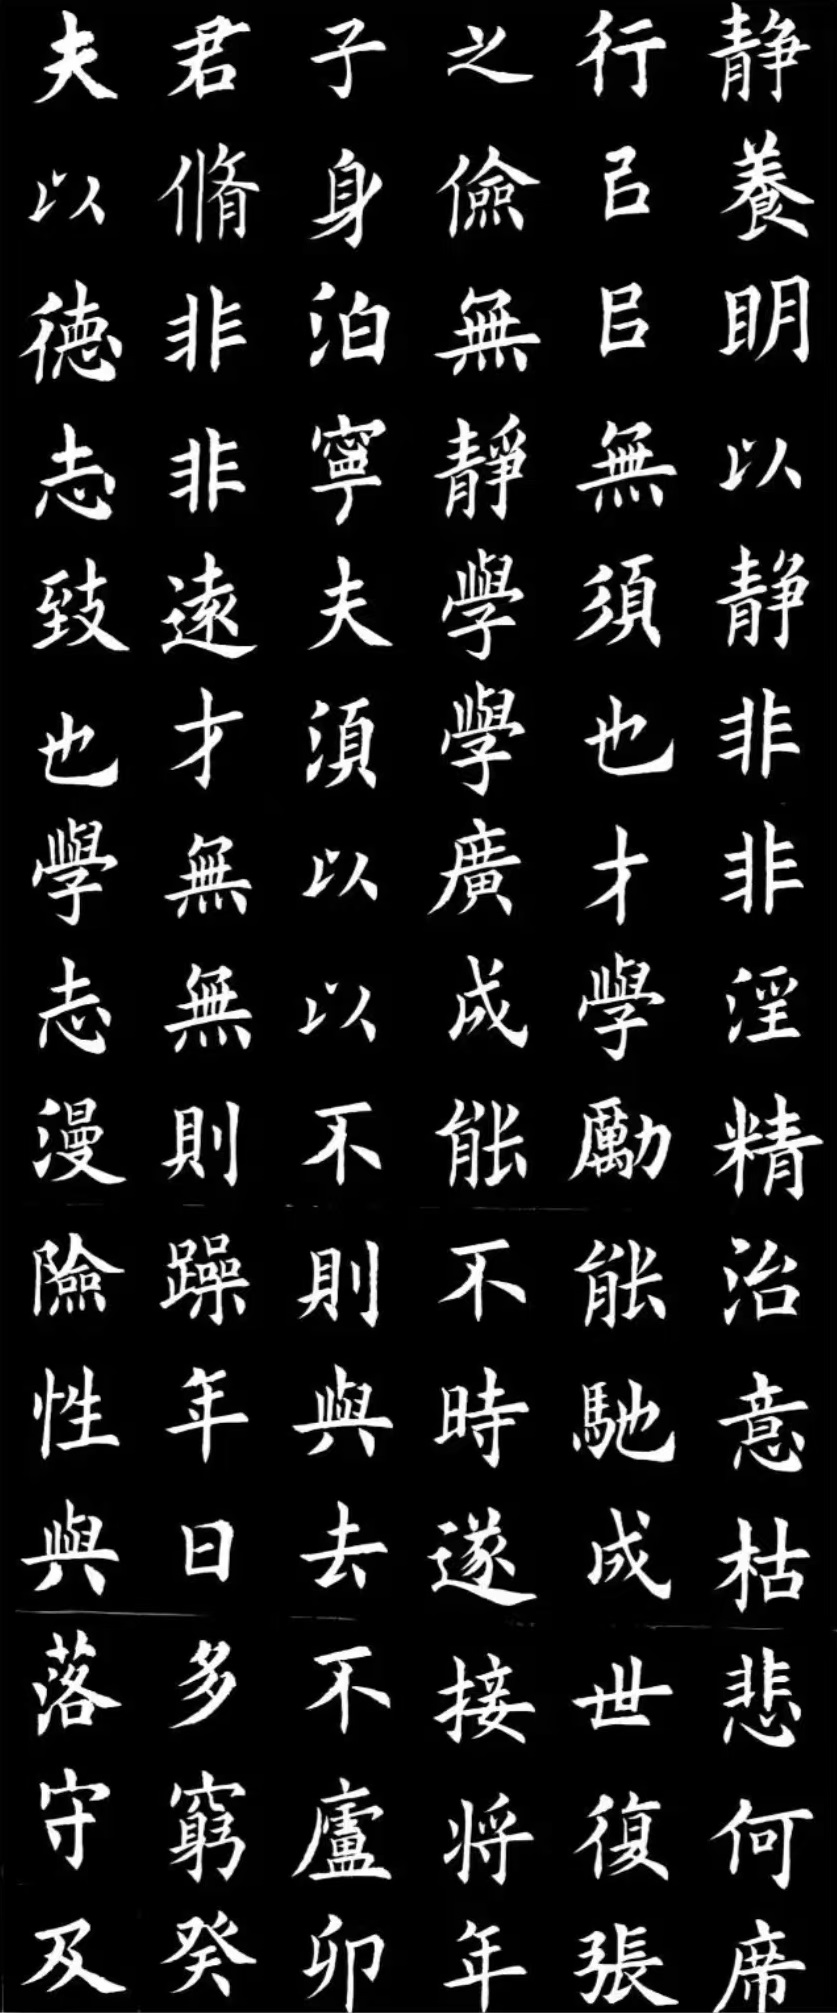 夫君子之行静
以脩身儉㠯養
徳非泊無㠯明
志非寧靜無以
致遠夫學須静
也才湏學也非
學無以廣才非
志無以成學淫
漫則不能勵精
險躁則不能治
性年與時馳意
與日去遂成枯
落多不接世悲
守窮廬将復何
及癸卯年張席